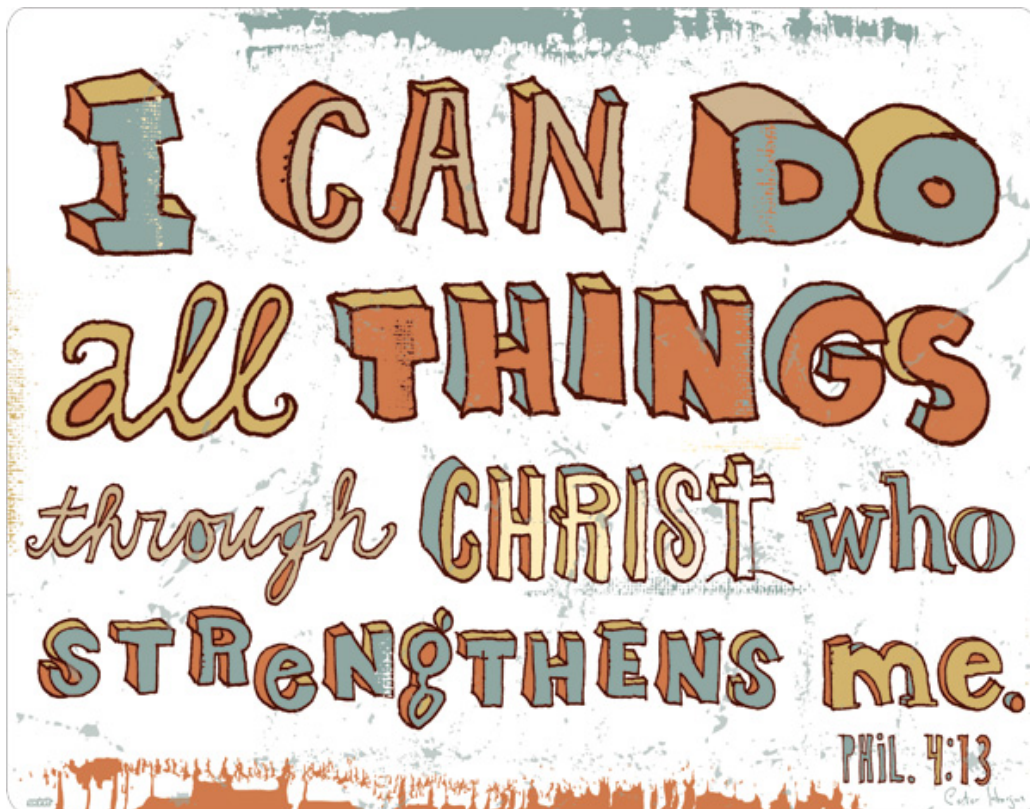 I CAN DO
all THINGS
through CHRIST who
STReNgTHENS me.
PHiL. 4:13